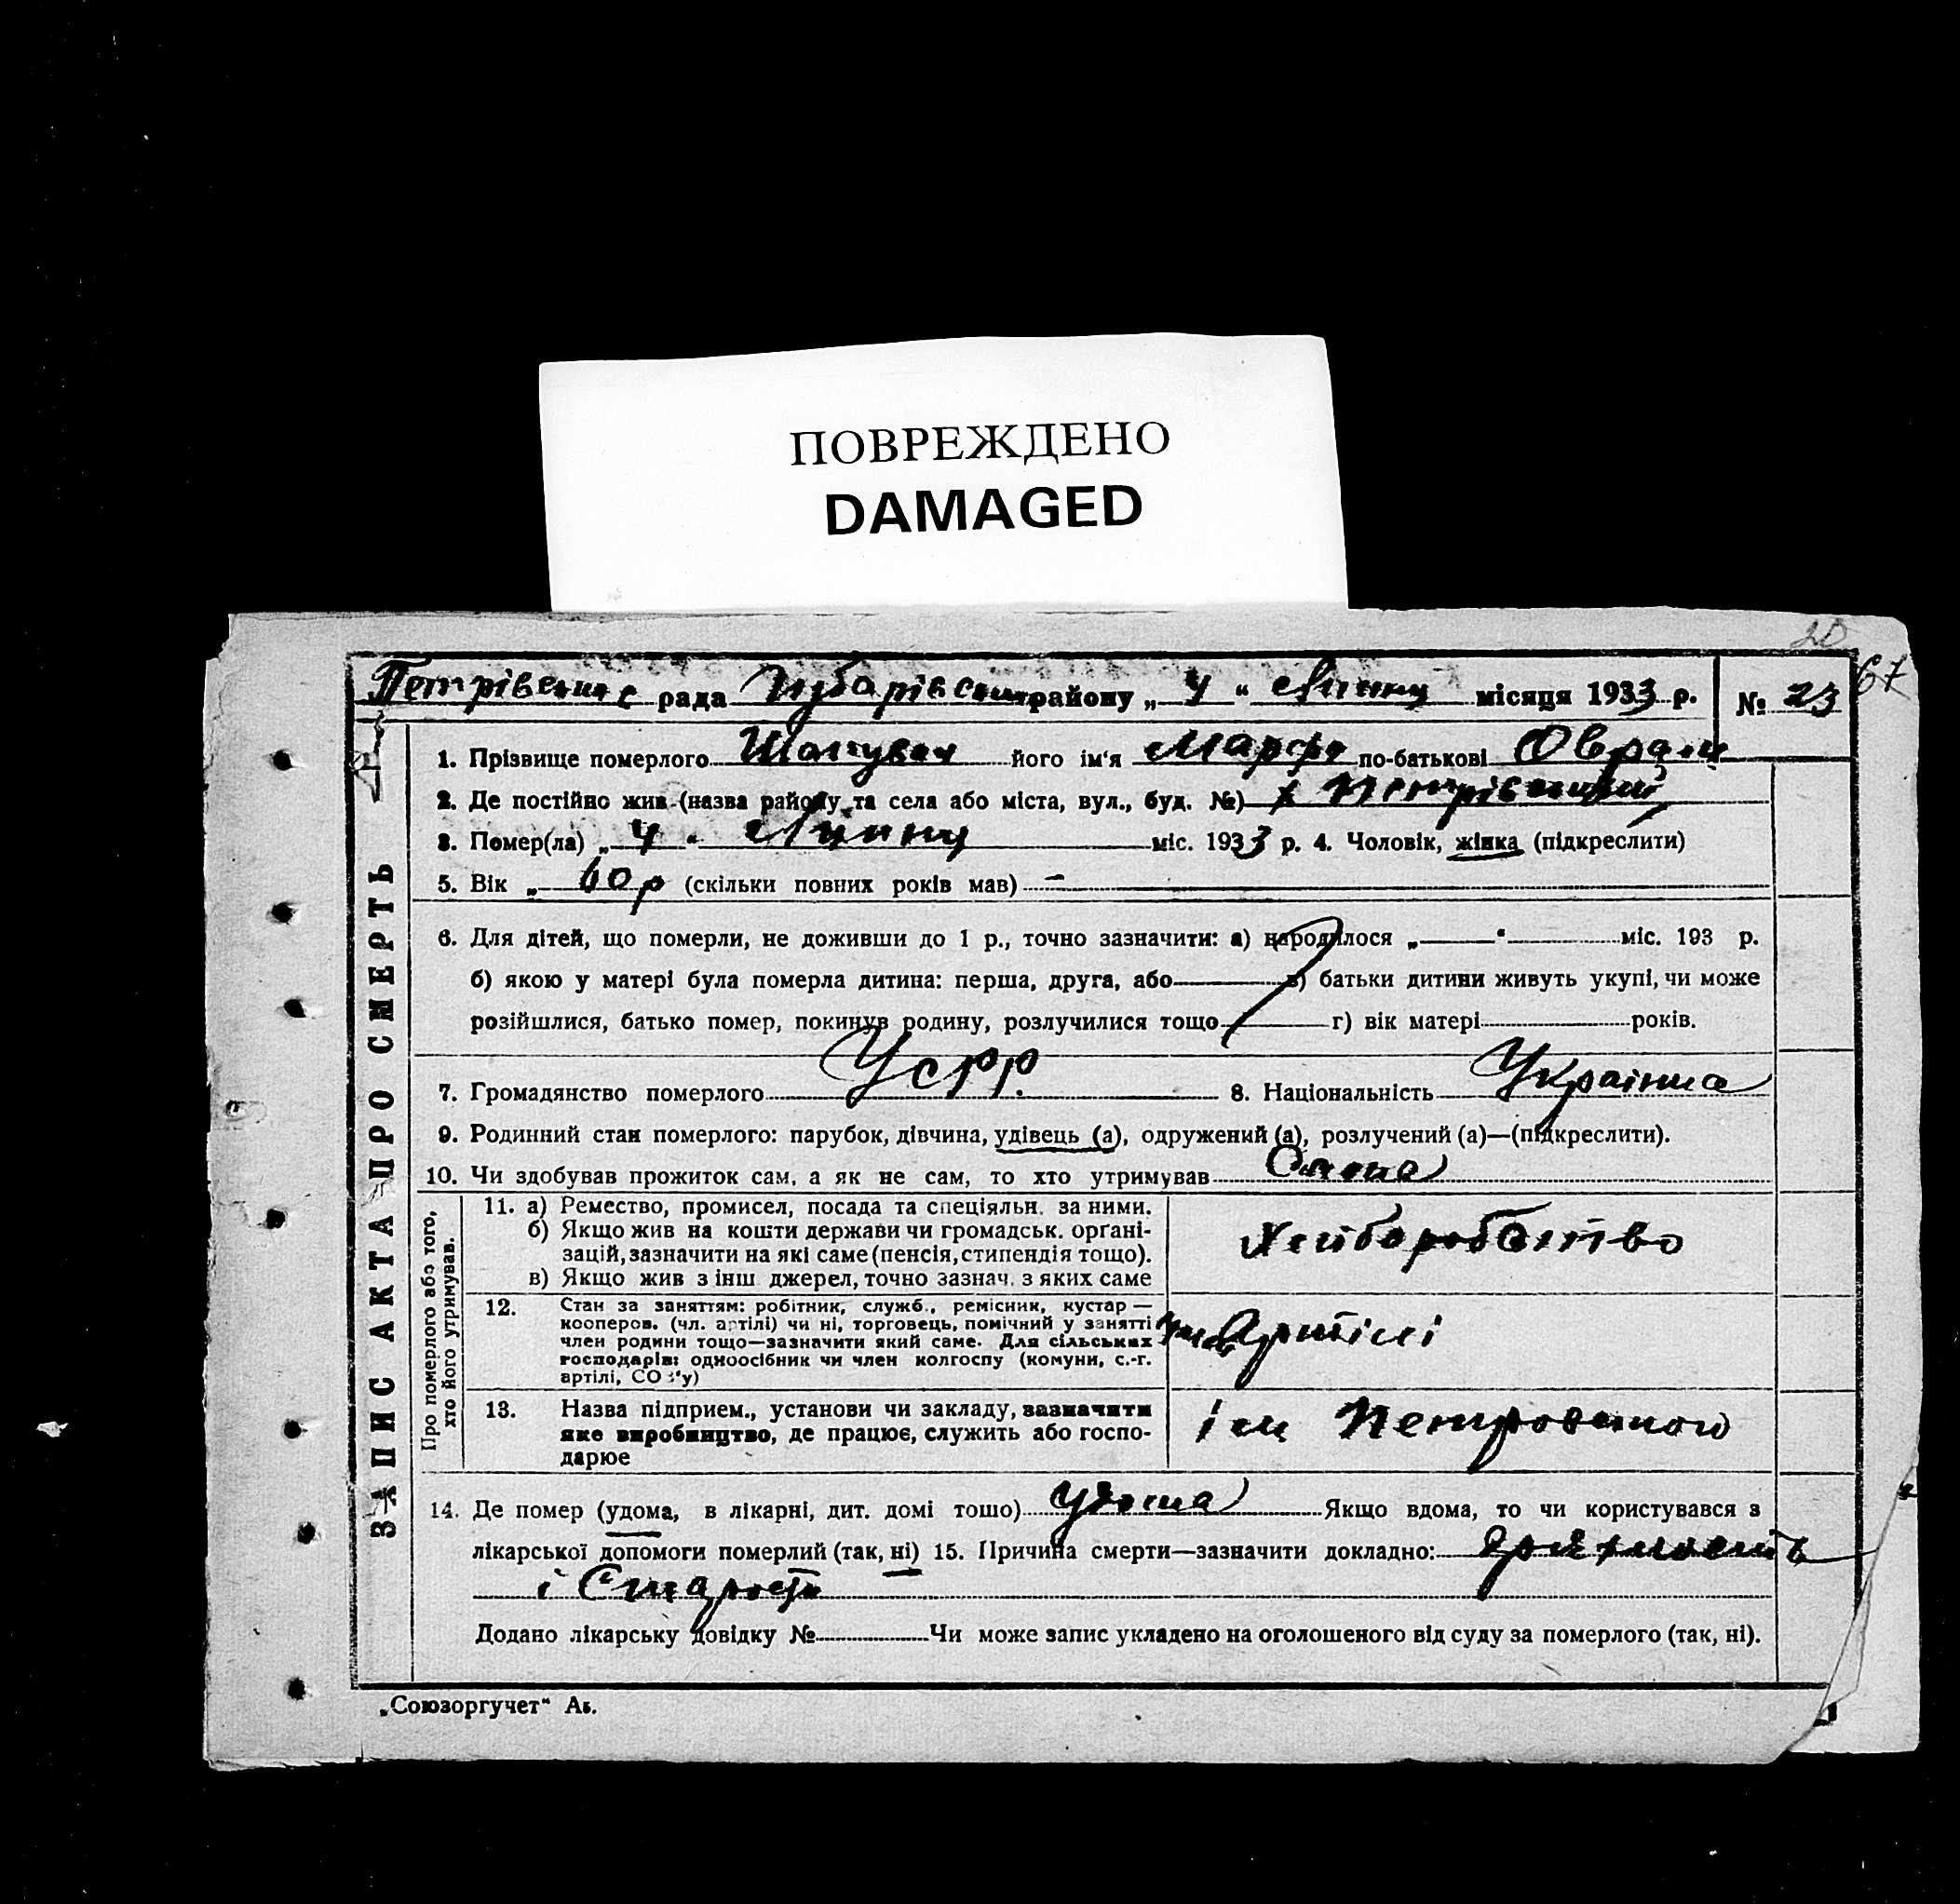 ПОВРЕЖДЕНО
DAMAGED
20
67
рада району „ 4 “ липню місяця 1933 р. № 23
ЗАПИС АКТА ПРО СМЕРТЬ
1. Прізвище померлого Шаповал його ім'я Марфа по-батькові Оврам
2. Де постійно жив (назва району та села або міста, вул., буд. №)
3. Помер(ла) „ 4 “ липню міс. 1933 р. 4. Чоловік, жінка (підкреслити)
5. Вік „ 60 р (скільки повних років мав) -
6. Для дітей, що померли, не доживши до 1 р., точно зазначити: а) народилося „ “ міс. 193 р.
б) якою у матері була померла дитина: перша, друга, або в) батьки дитини живуть укупі, чи може
розійшлися, батько помер, покинув родину, розлучилися тощо г) вік матері років.
7. Громадянство померлого УСРР. 8. Національність Українка
9. Родинний стан померлого: парубок, дівчина, удівець (а), одружений (а), розлучений (а)—(підкреслити).
10. Чи здобував прожиток сам, а як не сам, то хто утримував Сама
Про померлого або того,
хто його утримував.
11. а) Ремество, промисел, посада та спеціяльн. за ними.
б) Якщо жив на кошти держави чи громадськ. орґані-
зацій, зазначити на які саме (пенсія, стипендія тощо).
в) Якщо жив з інш. джерел, точно зазнач. з яких саме
Хліборобство
12. Стан за заняттям: робітник, служб., ремісник, кустар —
кооперов. (чл. артілі) чи ні, торговець, помічний у занятті
член родини тощо—зазначити який саме. Для сільських
господарів: одноосібник чи член колгоспу (комуни, с.-г.
артілі, СОЗ'у)
Член Артілі
13. Назва підприєм., установи чи закладу, зазначити
яке виробництво, де працює, служить або госпо-
дарює
ім Петровського
14. Де помер (удома, в лікарні, дит. домі тошо) удома Якщо вдома, то чи користувався з
лікарської допомоги померлий (так, ні) 15. Причина смерти—зазначити докладно: дряхлость
і Старость
Додано лікарську довідку № Чи може запис укладено на оголошеного від суду за померлого (так, ні).
„Союзоргучет“